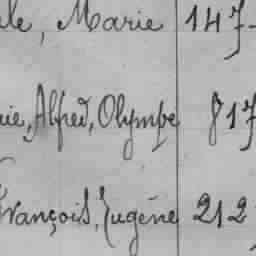 le, Marie 147-
ie, Alfred, Olympe 817
François, Eugéne 212